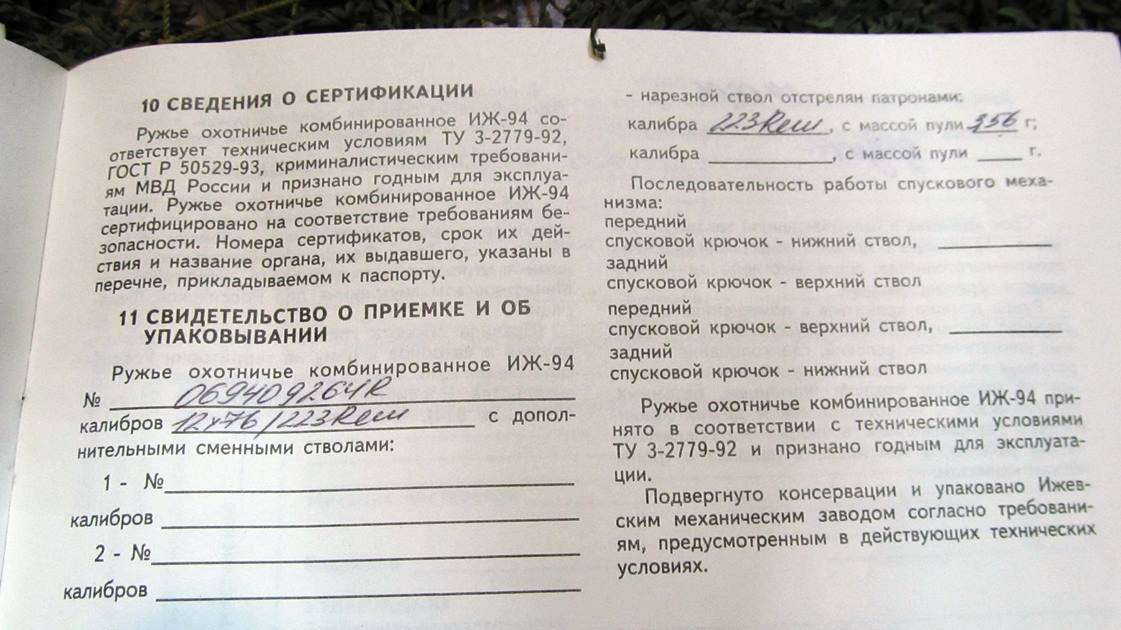 10 СВЕДЕНИЯ О СЕРТИФИКАЦИИ
Ружье охотничье комбинированное ИЖ-94 со-
ответствует техническим условиям ТУ 3-2779-92,
ГОСТ Р 50529-93, криминалистическим требовани-
ям МВД России и признано годным для эксплуа-
тации. Ружье охотничье комбинированное ИЖ-94
сертифицировано на соответствие требованиям бе-
зопасности. Номера сертификатов, срок их дей-
ствия и название органа, их выдавшего, указаны в
перечне, прикладываемом к паспорту.
11 СВИДЕТЕЛЬСТВО О ПРИЕМКЕ И ОБ
УПАКОВЫВАНИИ
Ружье охотничье комбинированное ИЖ-94
№ 069409264R
калибров 12x76/223Rem с допол-
нительными сменными стволами:
1 - №
калибров
2 - №
калибров
- нарезной ствол отстрелян патронами:
калибра 223Rem, с массой пули 356 г;
калибра , с массой пули г.
Последовательность работы спускового меха-
низма:
передний
спусковой крючок - нижний ствол,
задний
спусковой крючок - верхний ствол
передний
спусковой крючок - верхний ствол,
задний
спусковой крючок - нижний ствол
Ружье охотничье комбинированное ИЖ-94 при-
нято в соответствии с техническими условиями
ТУ 3-2779-92 и признано годным для эксплуата-
ции.
Подвергнуто консервации и упаковано Ижев-
ским механическим заводом согласно требовани-
ям, предусмотренным в действующих технических
условиях.